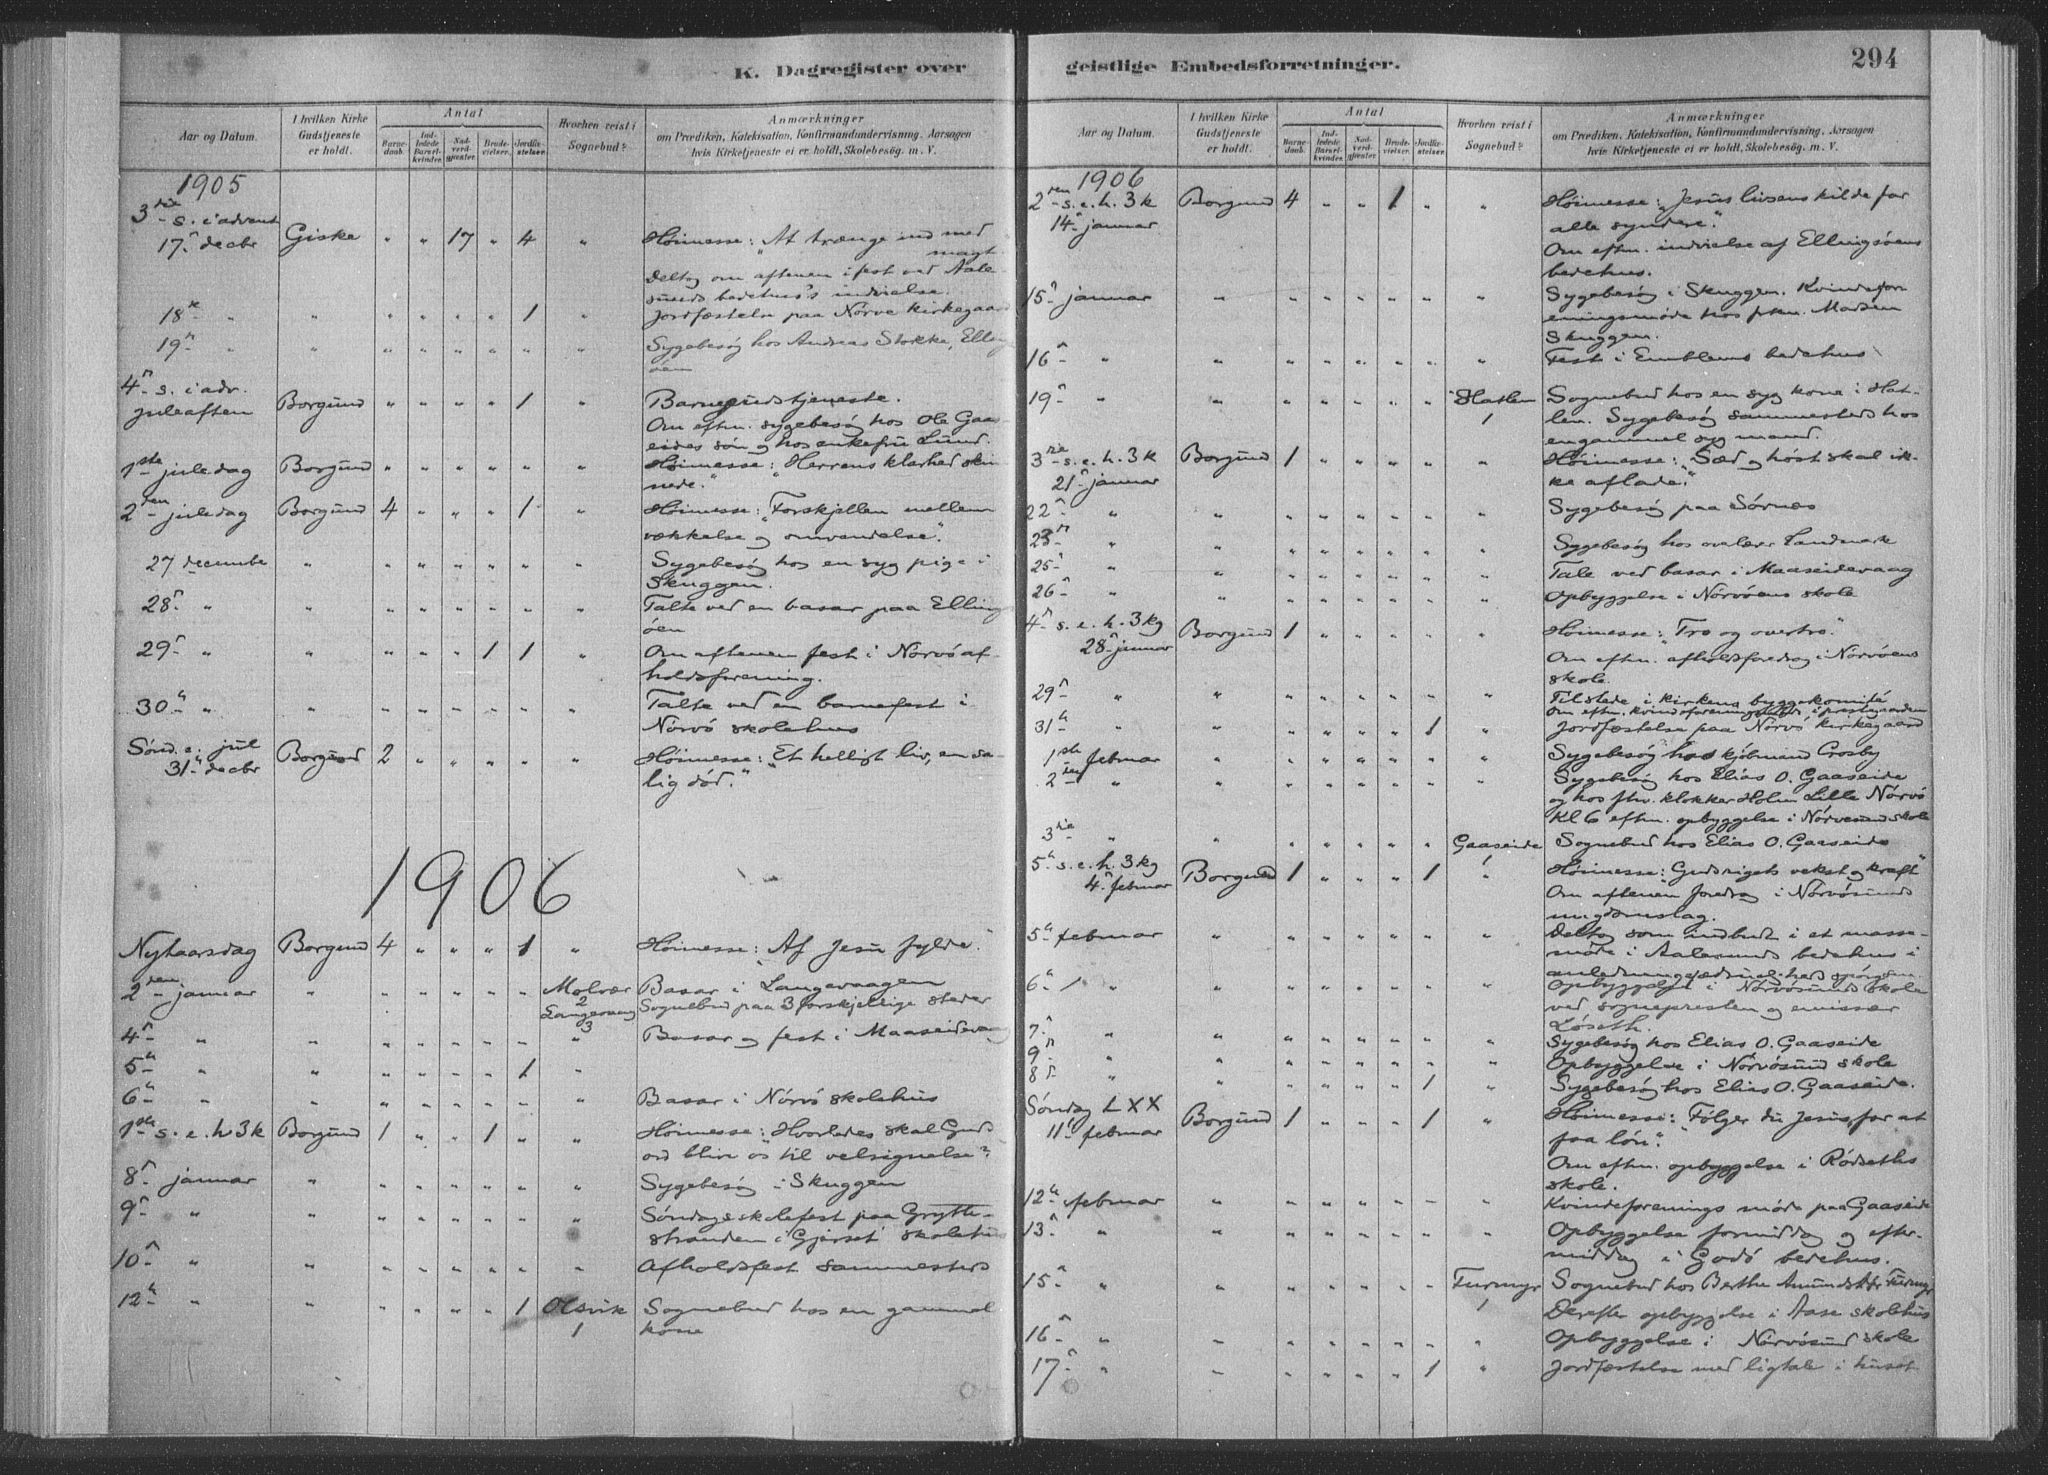 K. Dagregister over
Aar og Datum.
I hvilken Kirke Gudstjeneste er holdt.
Antal
Barnedaab.
Indledede Barselkvinder.
Nadverdgjæster.
Brudevielser.
Jordfæstelser.
Hvorhen reist i Sognebud?
Anmærkninger
om Prædiken, Katekisation, Konfirmandundervisning. Aarsagen
hvis Kirketjeneste ei er holdt, Skolebesøg. m. V.
1905
3die s. i advent
17. decbr Giske " " 17 " 4 " Høimesse: "At trænge ind med
magt.
Deltog om aftenen i fest ved Aale-
sunds bedehus's indvielse.
18 " " " " " " 1 " Jordfæstelse paa Nörve kirkegaard
19 " " " " " " " " Sygebesøg hos Andreas Stokke, Elling
öen
4 s. i adv.
juleaften Borgund " " " " 1 " Barnegudstjeneste.
Om eftm. sygebesög hos Ole Gaas-
eides sön og hos enkefru Lund.
1ste juledag Borgund " " " " " " Høimesse: "Herrens klarhed skin
nede."
2den juledag Borgund 4 " " " 1 " Høimesse: "Forskjellen mellem
vækkelse og omvendelse".
27 decembe " " " " " " " Sygebesög hos en syg pige i
Skuggen.
28 " " " " " " " " Talte ved en basar paa Elling
öen
29 " " " " " 1 1 " Om aftenen fest i Nörvö af-
holdsforening.
30 " " " " " " " " Talte ved en barnefest i
Nörvö skolehus
Sönd. e. jul
31 decbr Borgund 2 " " " " " Høimesse: "Et helligt liv, en sa-
lig död."
1906
Nytaarsdag Borgund 4 " " " 1 " Høimesse: "Af Jesu fylde."
2den januar " " " " " " Molvær Basar i Langevaagen
2
Langevaag Sognebud paa 3 forskjellige steder
3
4 " " " " " " " " Basar og fest i Maaseidevaag
5 " " " " " " 1 "
6 " " " " " " " " Basar i Nörvö skolehus
1ste s. e. h 3 k Borgund 1 " " 1 " " Høimesse: "Hvorledes skal Guds
ord blive os til velsignelse"?
8 januar " " " " " " " Sygebesög i Skuggen
9 " " " " " " " " Söndagsskolefest paa Grytte-
stranden i Gjerset skolehus
10 " " " " " " " " Afholdsfest sammesteds
12 " " " " " " 1 Olsvik Sognebud hos en gammel
1 kone
geistlige Embedsforretninger.
294
Aar og Datum.
I hvilken Kirke Gudstjeneste er holdt.
Antal
Barnedaab.
Indledede Barselkvinder.
Nadverdgjæster.
Brudevielser.
Jordfæstelser.
Hvorhen reist i Sognebud?
Anmærkninger
om Prædiken, Katekisation, Konfirmandundervisning. Aarsagen
hvis Kirketjeneste ei er holdt, Skolebesøg. m. V.
1906
2den s. e. h. 3 k Borgund 4 " " 1 " " Høimesse: "Jesus livsens kilde for
14 januar alle syndere".
Om eftm. indvielse af Ellingsöens
bedehus.
15 januar " " " " " " " Sygebesög i Skuggen. Kvindefor
eningsmöde hos Madsen
Skuggen.
16 " " " " " " " " Fest i Emblems bedehus
19 " " " " " " " Hatlen Sognebud hos en syg kone i Hat-
1 len. Sygebesög sammesteds hos
en gammel syg mand.
3die s. e. h. 3 k Borgund 1 " " " " " Høimesse: "Sæd og höst skal ik-
21 januar ke aflade".
22 " " " " " " " " Sygebesög paa Sörnes
23 " " " " " " " " Sygebesög hos overlærer Landmark
25 " " " " " " " " Tale ved basar i Maaseidevaag
26 " " " " " " " " Opbyggelse i Nörvöens skole
4 s. e. h. 3 kg
28 januar Borgund 1 " " " " " Høimesse: "Tro og overtro."
Om eftm. afholdsforedrag i Nörvöens
skole.
29 " " " " " " " " Tilstede i kirkens byggekomité
Om eftm. kvindeforening i prestegaarden
31 " " " " " " 1 " Jordfæstelse paa Nörvö kirkegaard
1ste februar " " " " " " " Sygebesög hos kjöbmand Crosby
2den " " " " " " " " Sygebesög hos Elias O. Gaaseide
og hos fhv. klokker Holm Lille Nörvö
Kl 6 eftm. opbyggelse i Nörvesund skole
3die " " " " " " " Gaaseide Sognebud hos Elias O. Gaaseide
1
5 s. e. h. 3 kg
4 februar Borgund 1 " " " 1 " Høimesse: "Gudsrigets vekst og kraft"
Om aftenen foredrag i Nörvösunds
ungdomslag.
5 februar " " " " " " " Deltog som indbudt i et masse-
möde i Aalesunds bedehus i
anledning
6 " " " " " " " " Opbyggelse i Nörvösunds skole
ved sognepresten og emissær
Löseth.
7 " " " " " " " " Sygebesög hos Elias O. Gaaseide
9 " " " " " " " " Opbyggelse i Nörvösund skole
8 " " " " " " 1 " Sygebesög hos Elias O. Gaaseide.
Söndag LXX
11 februar Borgund 1 " " " 1 " Høimesse: "Fölger du Jesus, for at
faa lön".
Om eftm. opbyggelse i Rödseths
skole.
12 februar " " " " " " " Kvindeforenings möde paa Gaaseide
13 " " " " " " " " Opbyggelse formiddag og efter-
middag i Godö bedehus.
15 " " " " " " " Furmyr Sognebud hos Berthe Amunds Furmyr
1 Derefter opbyggelse i Aase skolehus
16 " " " " " " " " Opbyggelse i Nörvösund skole
17 " " " " " " 1 " Jordfæstelse med ligtale i huset